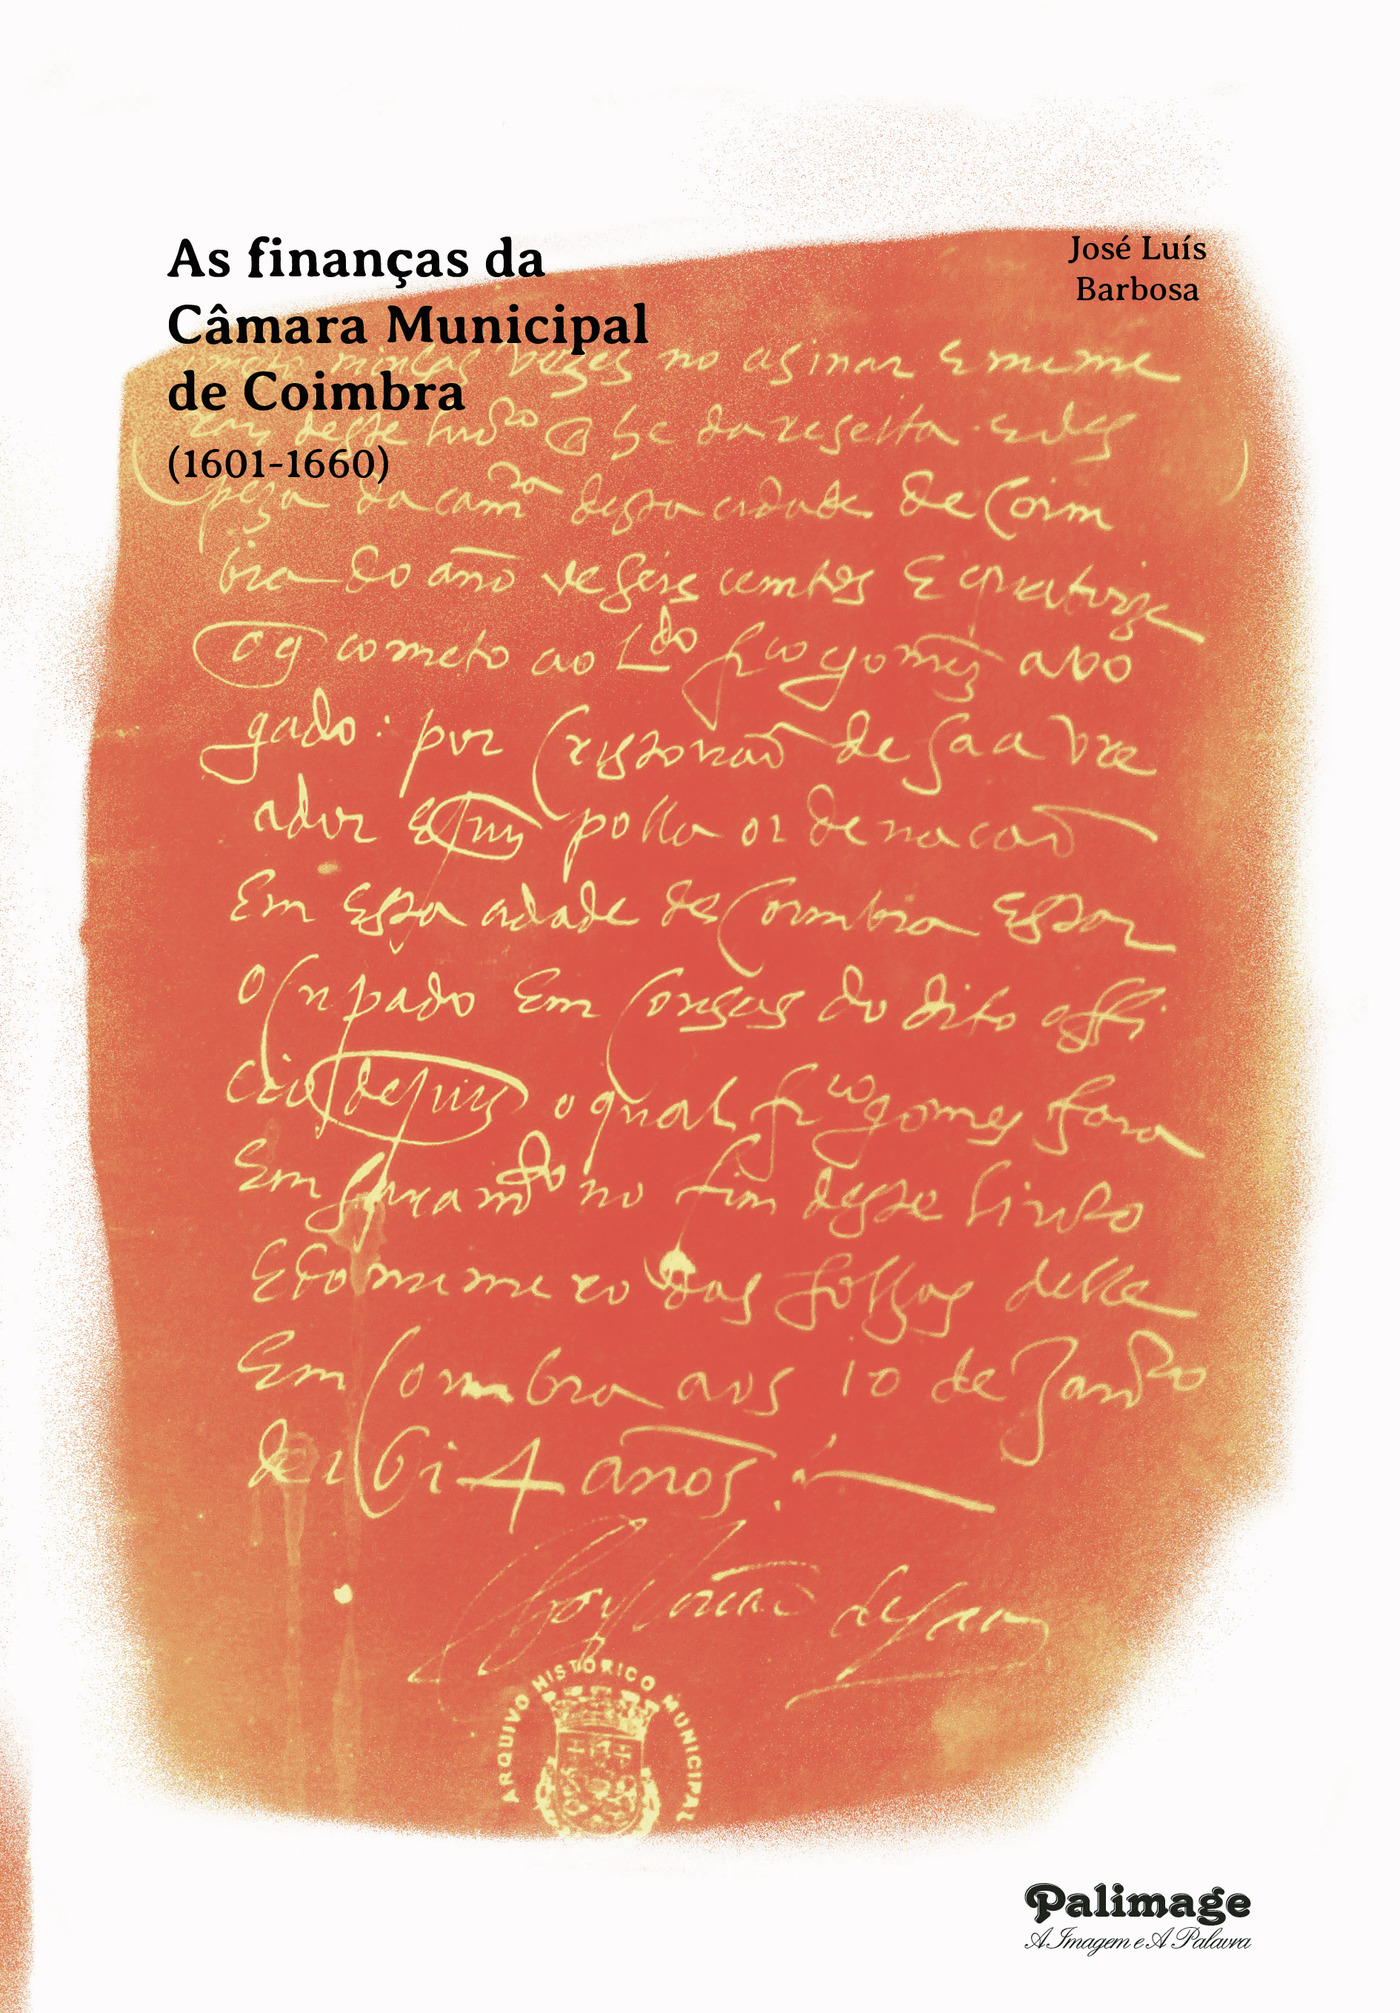 As finanças da
Câmara Municipal
de Coimbra
(1601-1660)
José Luís
Barbosa
vezes no asinar E nume
deste & he da reseita Edes
peza da camra desta cidade de Coim
bra do ano de seis centos E quatorze
cometo ao Ldo frco gomez avo
gado : por Cristovão de saa vre
ador polla ordenacão
Em Esta cidade de Coimbra Estar
OCupado Em Cousas do dito offi
cio o qual frco gomes fara
Em no fim deste livro
E do numero das folhas delle
Em Coimbra aos 10 de Janro
de 1614 anos
de saa
ARQUIVO HISTÓRICO MUNICIPAL
Palimage
A Imagem e A Palavra